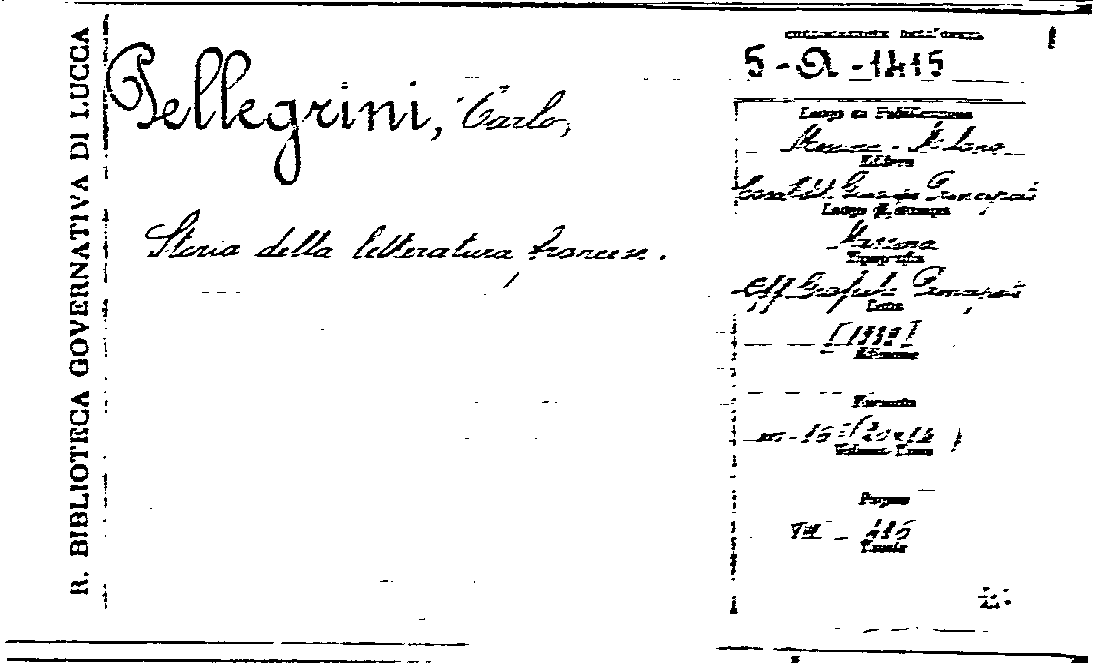 R. BIBLIOTECA GOVERNATIVA DI LUCCA
Pellegrini, Carlo,
Storia della letteratura francese.
COLLOCAZIONE DELL'OPERA
5 - A - 1415
Luogo di Pubblicazione
Messina - Milano
Editore
Casa Ed. Giuseppe Principato
Luogo di stampa
Messina
Tipografia
Off. Grafiche Principato
Data
Edizione
Formato
in-16° (20x12)
Volumi
Pagine
VII - 415
Tavole